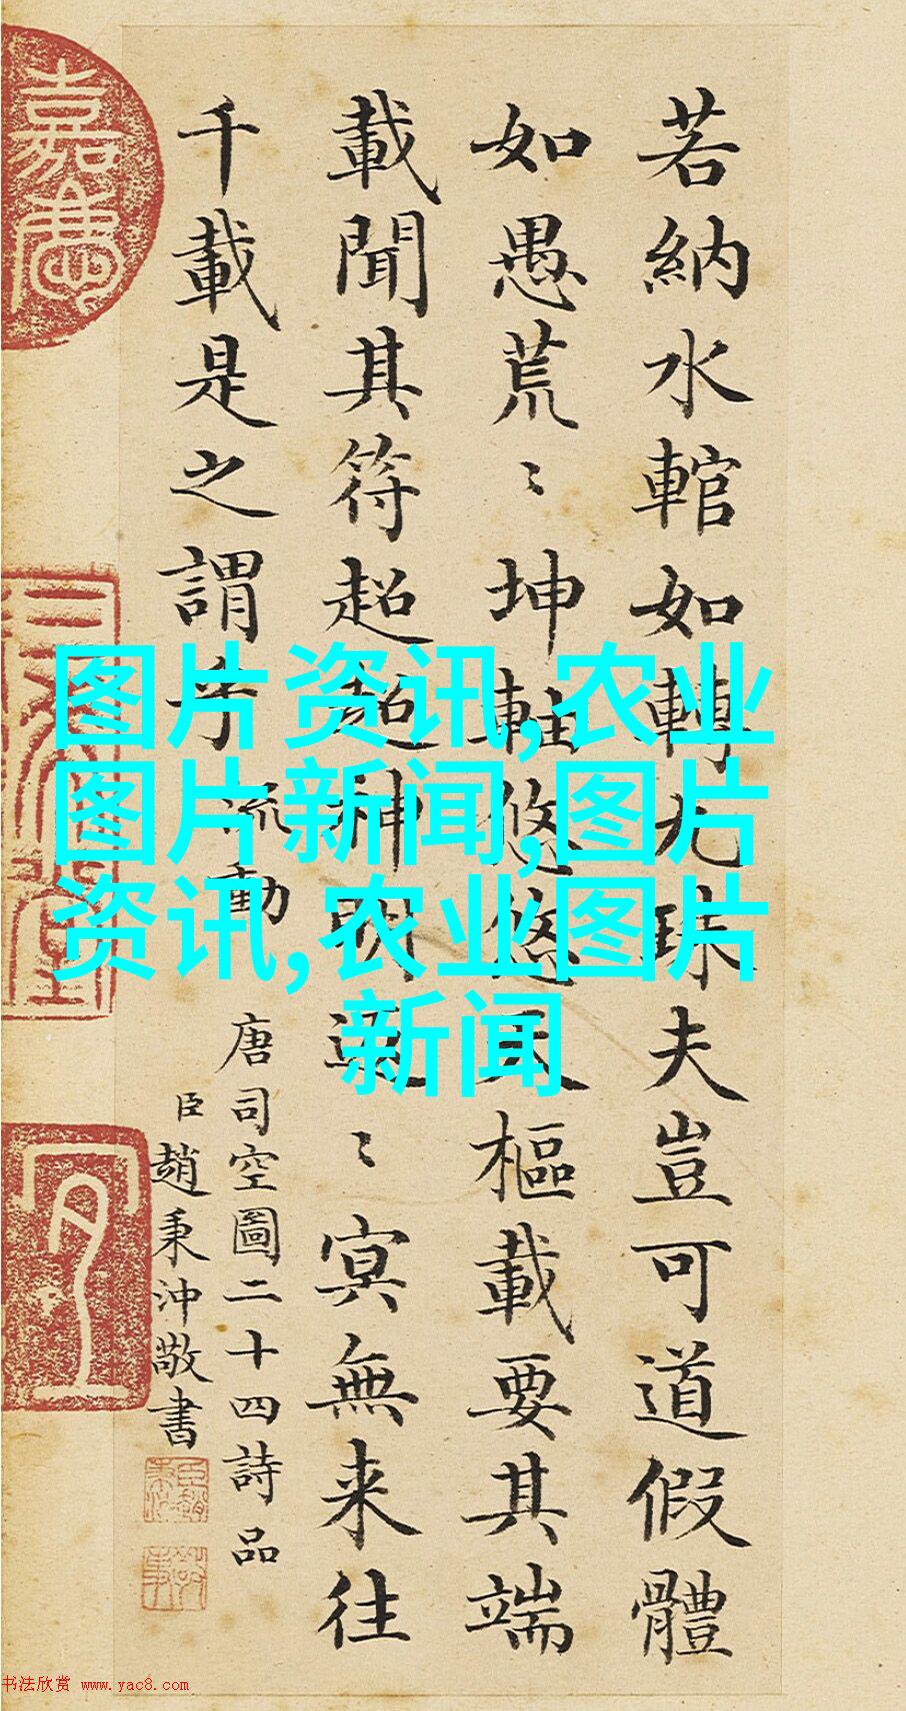 若納水輨如轉丸珠夫豈可道假體
如愚荒〻坤軸悠悠天樞載要其端
載聞其符超超神明返〻冥無来往
千載是之謂乎 流動
唐司空圖二十四詩品
臣趙秉沖敬書
嘉慶
图片资讯,农业
图片新闻,图片
资讯,农业图片
新闻
书法欣赏 www.yac8.com